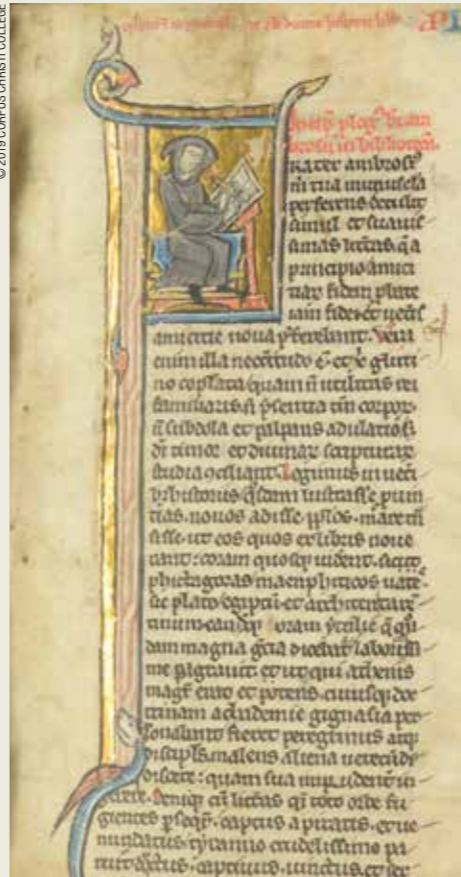 © 2019 CORPUS CHRISTI COLLEGE
rater ambrosi
m tua munuscla
perferens detulit
simul et suauis
simas litteras q̃ a
principio amici
tiaꝝ fidem p̱bate
iam fidei et uetis
amicitie noua p̱ferebant. Vera
enim illa necc̄itudo ē. et xp̄i gluti
no copulata. quam ñ utilitas rei
familiaris. ñ p̄sentia tm̄ corpoꝝ.
ñ subdola et palpans adulatio. ꝫ
di timor et diuinaꝝ scripturaꝝ
studia ↄciliant. Legimus in ueti
bꝫ historiis q̄sdam lustrasse puin
cias. nouos adisse pplos. maria tn̄
sisse. ut eos quos ex libris noue
rant: coram quoqꝫ uiderent. Sicut
phitagoras memphiticos uates.
sic plato egiptū. et architam tarē
tinum. eandēqꝫ oram ytalie q̄ q̄n
dam magna gr̄cia dicebat laboriosissi
me pagrauit. et ut qui athenis
mag̃r erat et potens. cuiusqꝫ doc
trinam achademie gignasia per
sonabant. fieret peregrinus atqꝫ
discipls. malens aliena uerecūde
discere: quam sua impudenter in
gerere. Deniqꝫ cū litteras q̄i toto orbe fu
gientes pseq̃r. captus a piratis. et ue
nundatus tyranno crudelissimo pa
ruit captiuus. uinctus. et ser